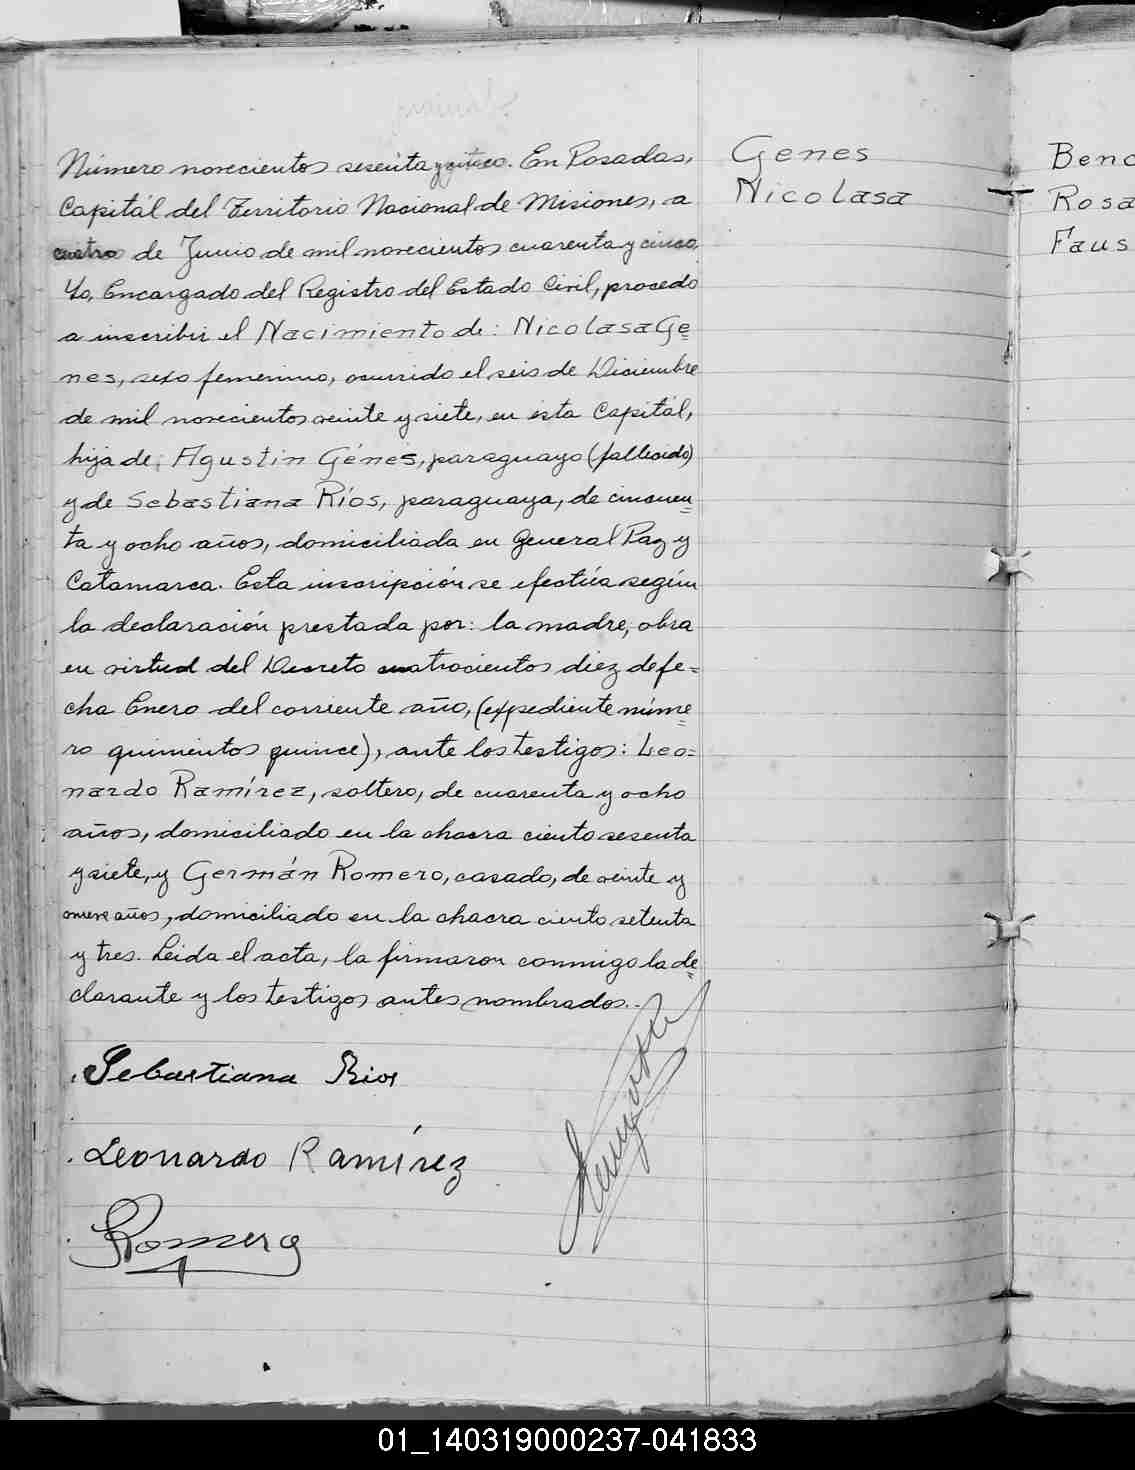 Número novecientos sesenta y cinco. En Posadas,
Capitál del Territorio Nacional de Misiones, a
cuatro de Junio de mil novecientos cuarenta y cinco,
Yo, Encargado del Registro del Estado Civil, procedo
a inscribir el Nacimiento de: Nicolasa Ge=
nes, sexo femenino, ocurrido el seis de Diciembre
de mil novecientos veinte y siete, en ésta Capitál,
hija de: Agustin Génes, paraguayo (fallecido)
y de Sebastiana Ríos, paraguaya, de cincuen=
ta y ocho años, domiciliada en General Paz y
Catamarca. Esta inscripción se efectúa según
la declaración prestada por: la madre, obra
en virtud del Decreto cuatrocientos diez de fe=
cha Enero del corriente año, (expediente núme=
ro quinientos quince), ante los testigos: Leo=
nardo Ramírez, soltero, de cuarenta y ocho
años, domiciliado en la chacra ciento sesenta
y siete, y Germán Romero, casado, de veinte y
nueve años, domiciliado en la chacra ciento setenta
y tres. Leida el acta, la firmaron conmigo la de=
clarante y los testigos antes nombrados.-
Sebastiana Rios
Leonardo Ramírez
Romero
Genes
Nicolasa
Beno
Rosa
Faus
01_140319000237-041833